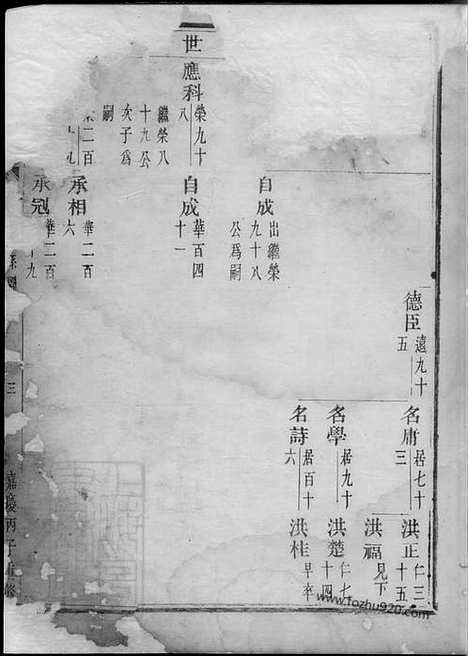 德臣 遠九十五
名庸 居七十三
洪正 仁三十五
洪福 見下
名學 居九十
洪楚 仁七十四
名詩 居百十六
洪桂 早卒
自成 出繼榮九十八公爲嗣
世應科 榮九十八
繼榮八十九公次子爲嗣
自成 華百四十一
二百
承相 華二百六
承冠 華二百九
三
嘉慶丙子重修
www.fozhu920.com